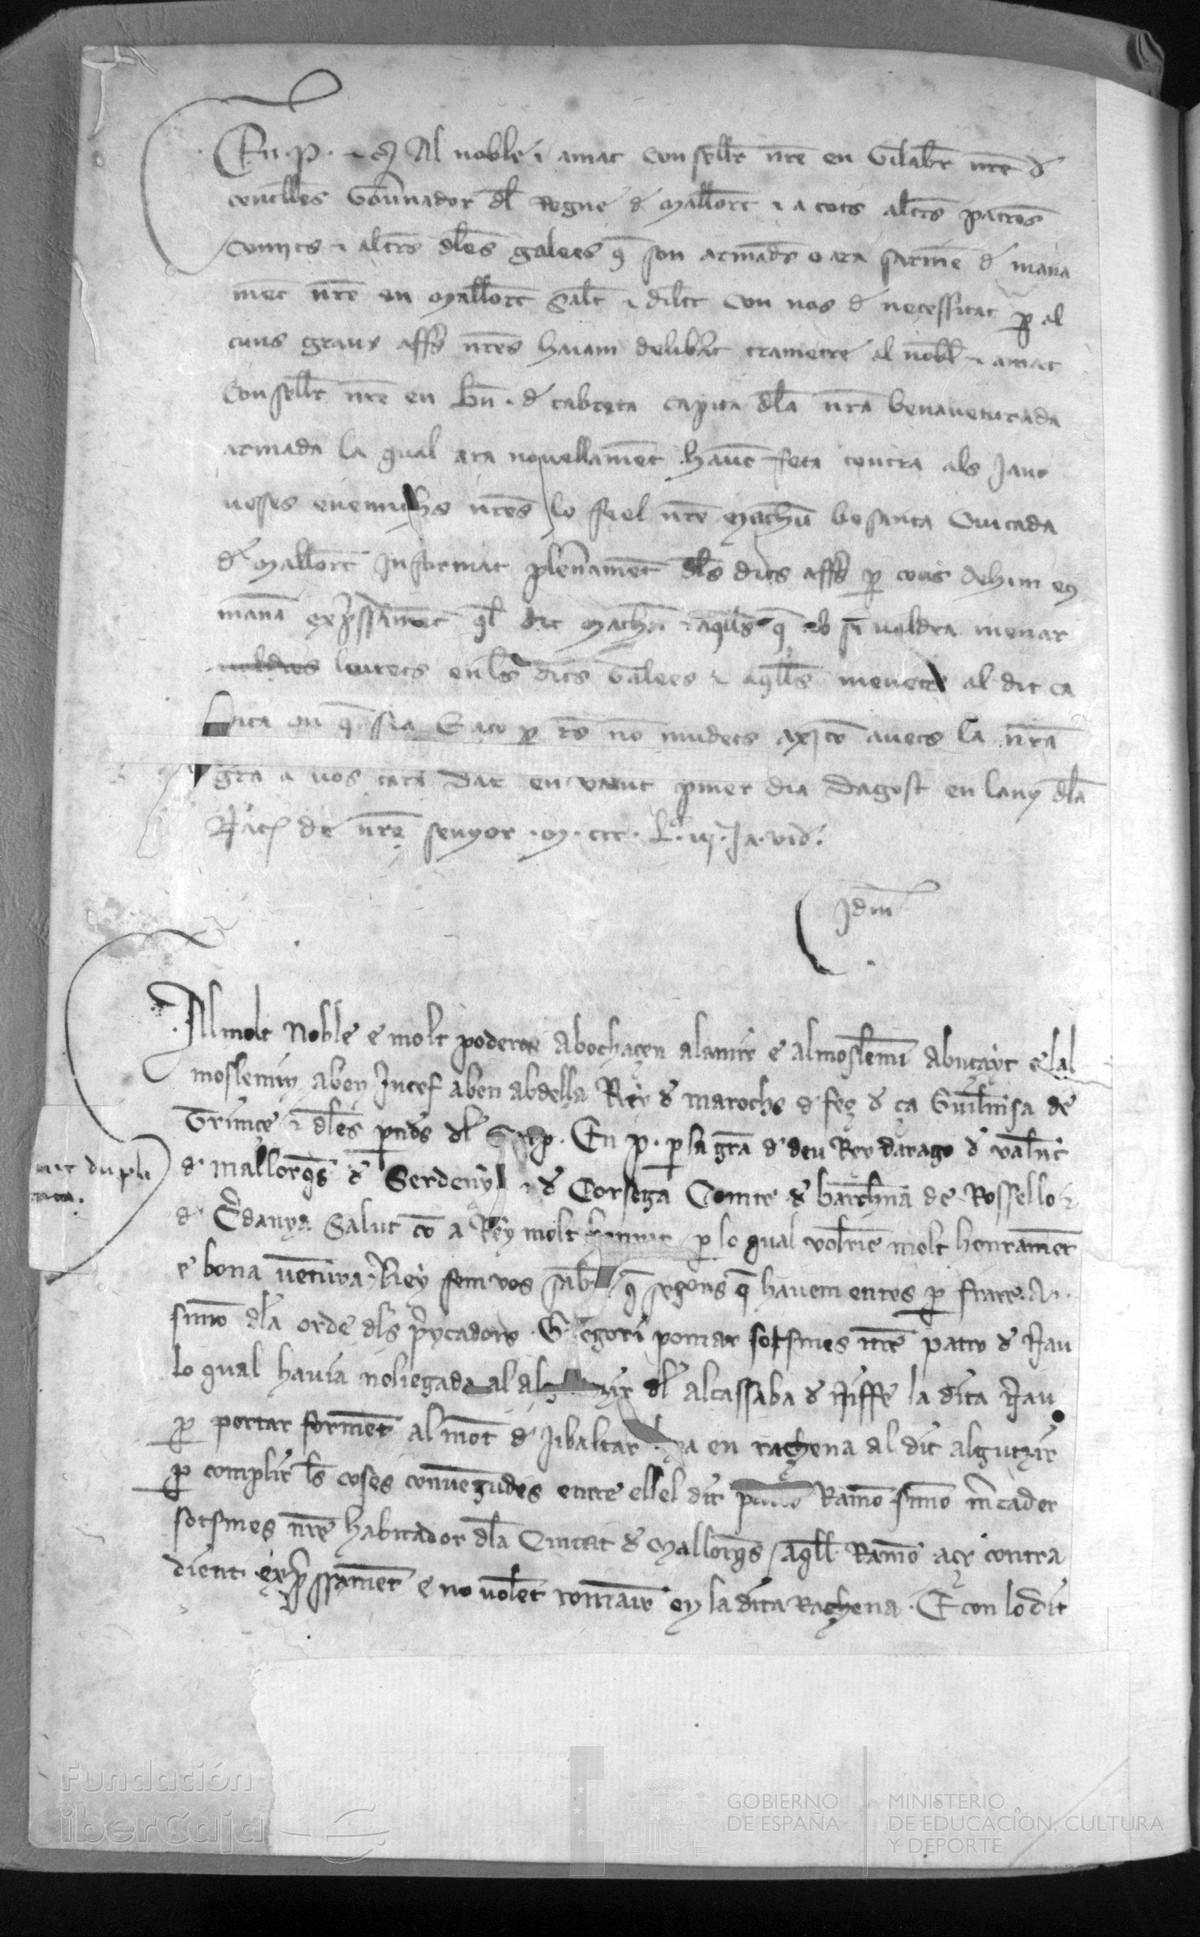 En P. etc. Al noble e amat conseller nre en Gilabt nre d
centelles Gounador dl Regne d Mallorc e a tots altrs patrons
comits e altrs dles galees q son armads o ara sarmen d mana
ment nre en Mallorc Salt e dilcc Con nos d necessitat p al
cuns graux affs nres haiam deliberat trametre al nobl e amat
Conseller nre en Bn. d cabrera capita dla nra benauenturada
armada la qual ara nouellament hauem feta contra als Janu
ueses enemichs nres lo feel nre Matheu besanta Ciutada
d Mallorc informat plenament dls dits affs p couis dehim eus
manam expressament ql dit Matheu e aqlls q ab si voldra menar
leuets en ls dits Galees e aqlls menets al dit ca
pita on q sia E aco p res no mudets axi con auets la nra
gra a uos cara Dat en Valent pmer dia Dagost en lany dla
Nat de nre senyor .M.CCC.L.iij. Ja. vid.
Idm
Al molt Noble e molt poderos Abochacen alamir e almoslemi abucayt e lal
moslemin aben Jucef aben abdella Rey d marochs d feç d ça Guilmisa de
Trimce e dles pnds dl En P. p la gra d deu Rey darago d valenc
d mallorqs d Serdenya e d Corsega Comte d barchna de Rossello e
d Cerdanya Salut co a Rey molt honrat p lo qual volriem molt honrament
e bona ventura. Rey fem vos saber q segons q hauem entes p frare A.
simo dla orde dls preycadors. Gregori pomar sotsmes nre patro d Nau
lo qual hauia noliegada al dl alcassaba d Niffe la dita Nau
p portar forment al mont d Jibaltar en rachena al dit alguzir
p complir les coses conuengudes entre ell el dit Ramo simo mcader
sotsmes nre habitador dla Ciutat d Mallorqs aqll Ramo acy contra
dient expressament e no volent romanir en la dita rachena. E con lo dit
dupli
cata.
Fundación
iberCaja
GOBIERNO
DE ESPAÑA
MINISTERIO
DE EDUCACIÓN, CULTURA
Y DEPORTE